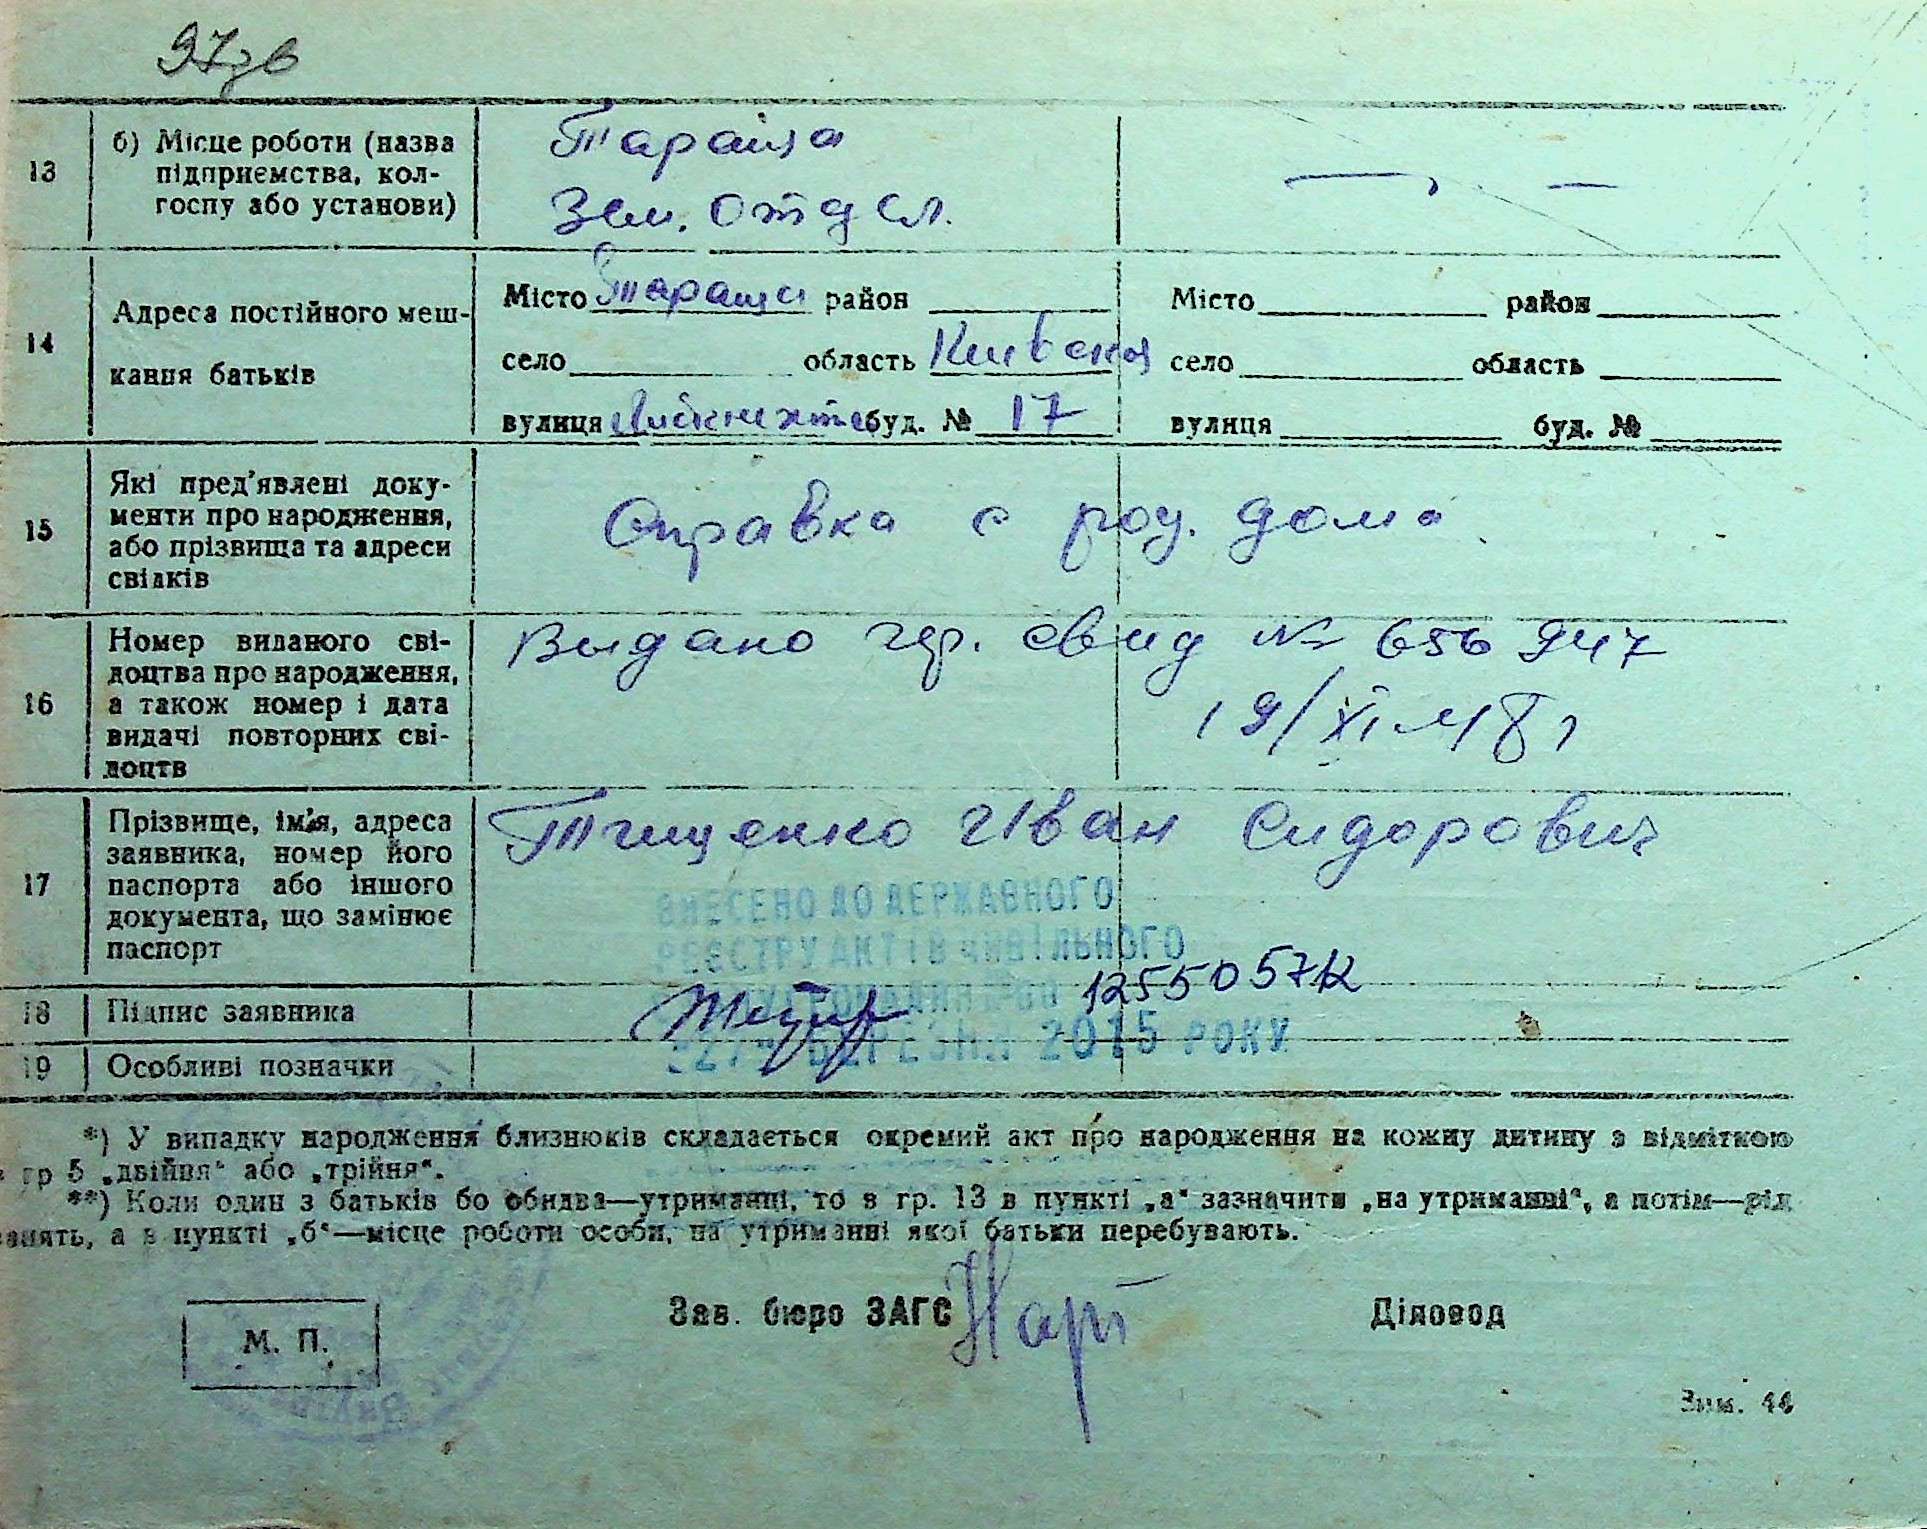 97зв
13
б) Місце роботи (назва
підприємства, кол-
госпу або установи)
Тараща
Зем. отдел.
14
Адреса постійного меш-
кання батьків
Місто Тараща район
село область Киевская
вулиця Либкнехта буд. № 17
Місто район
село область
вулиця буд. №
15
Які пред'явлені доку-
менти про народження,
або прізвища та адреси
свідків
Справка с род. дома
16
Номер виданого сві-
доцтва про народження,
а також номер і дата
видачі повторних сві-
доцтв
Выдано гер. свид № 656947
19/XI 48 г
17
Прізвище, ім'я, адреса
заявника, номер його
паспорта або іншого
документа, що замінює
паспорт
Тищенко Иван Сидорович
ВНЕСЕНО ДО ДЕРЖАВНОГО
РЕЄСТРУ АКТІВ ЦИВІЛЬНОГО
СТАНУ ГРОМАДЯН ЗА №
12550572
"27" БЕРЕЗНЯ 2015 РОКУ
18
Підпис заявника
19
Особливі позначки
*) У випадку народження близнюків складається окремий акт про народження на кожну дитину з відміткою
в гр 5 „двійня“ або „трійня“.
**) Коли один з батьків бо обидва—утриманці, то в гр. 13 в пункті „а“ зазначити „на утриманні“, а потім—рід
занять, а в пункті „б“—місце роботи особи, на утриманні якої батьки перебувають.
М. П.
Зав. бюро ЗАГС
Діловод
Зам. 44